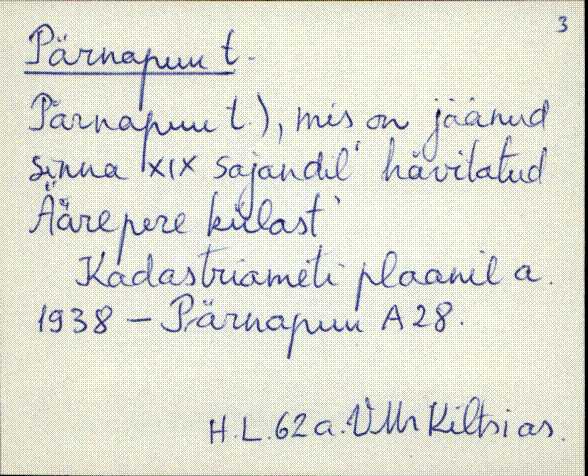 3
Pärnapuu t.
Pärnapuu t.), mis on jäänud
sinna XIX sajandil hävitatud
Äärepere külast
Kadastriameti plaanil a.
1938 – Pärnapuu A 28.
H.L. 62 a. VMr Kiltsi as.